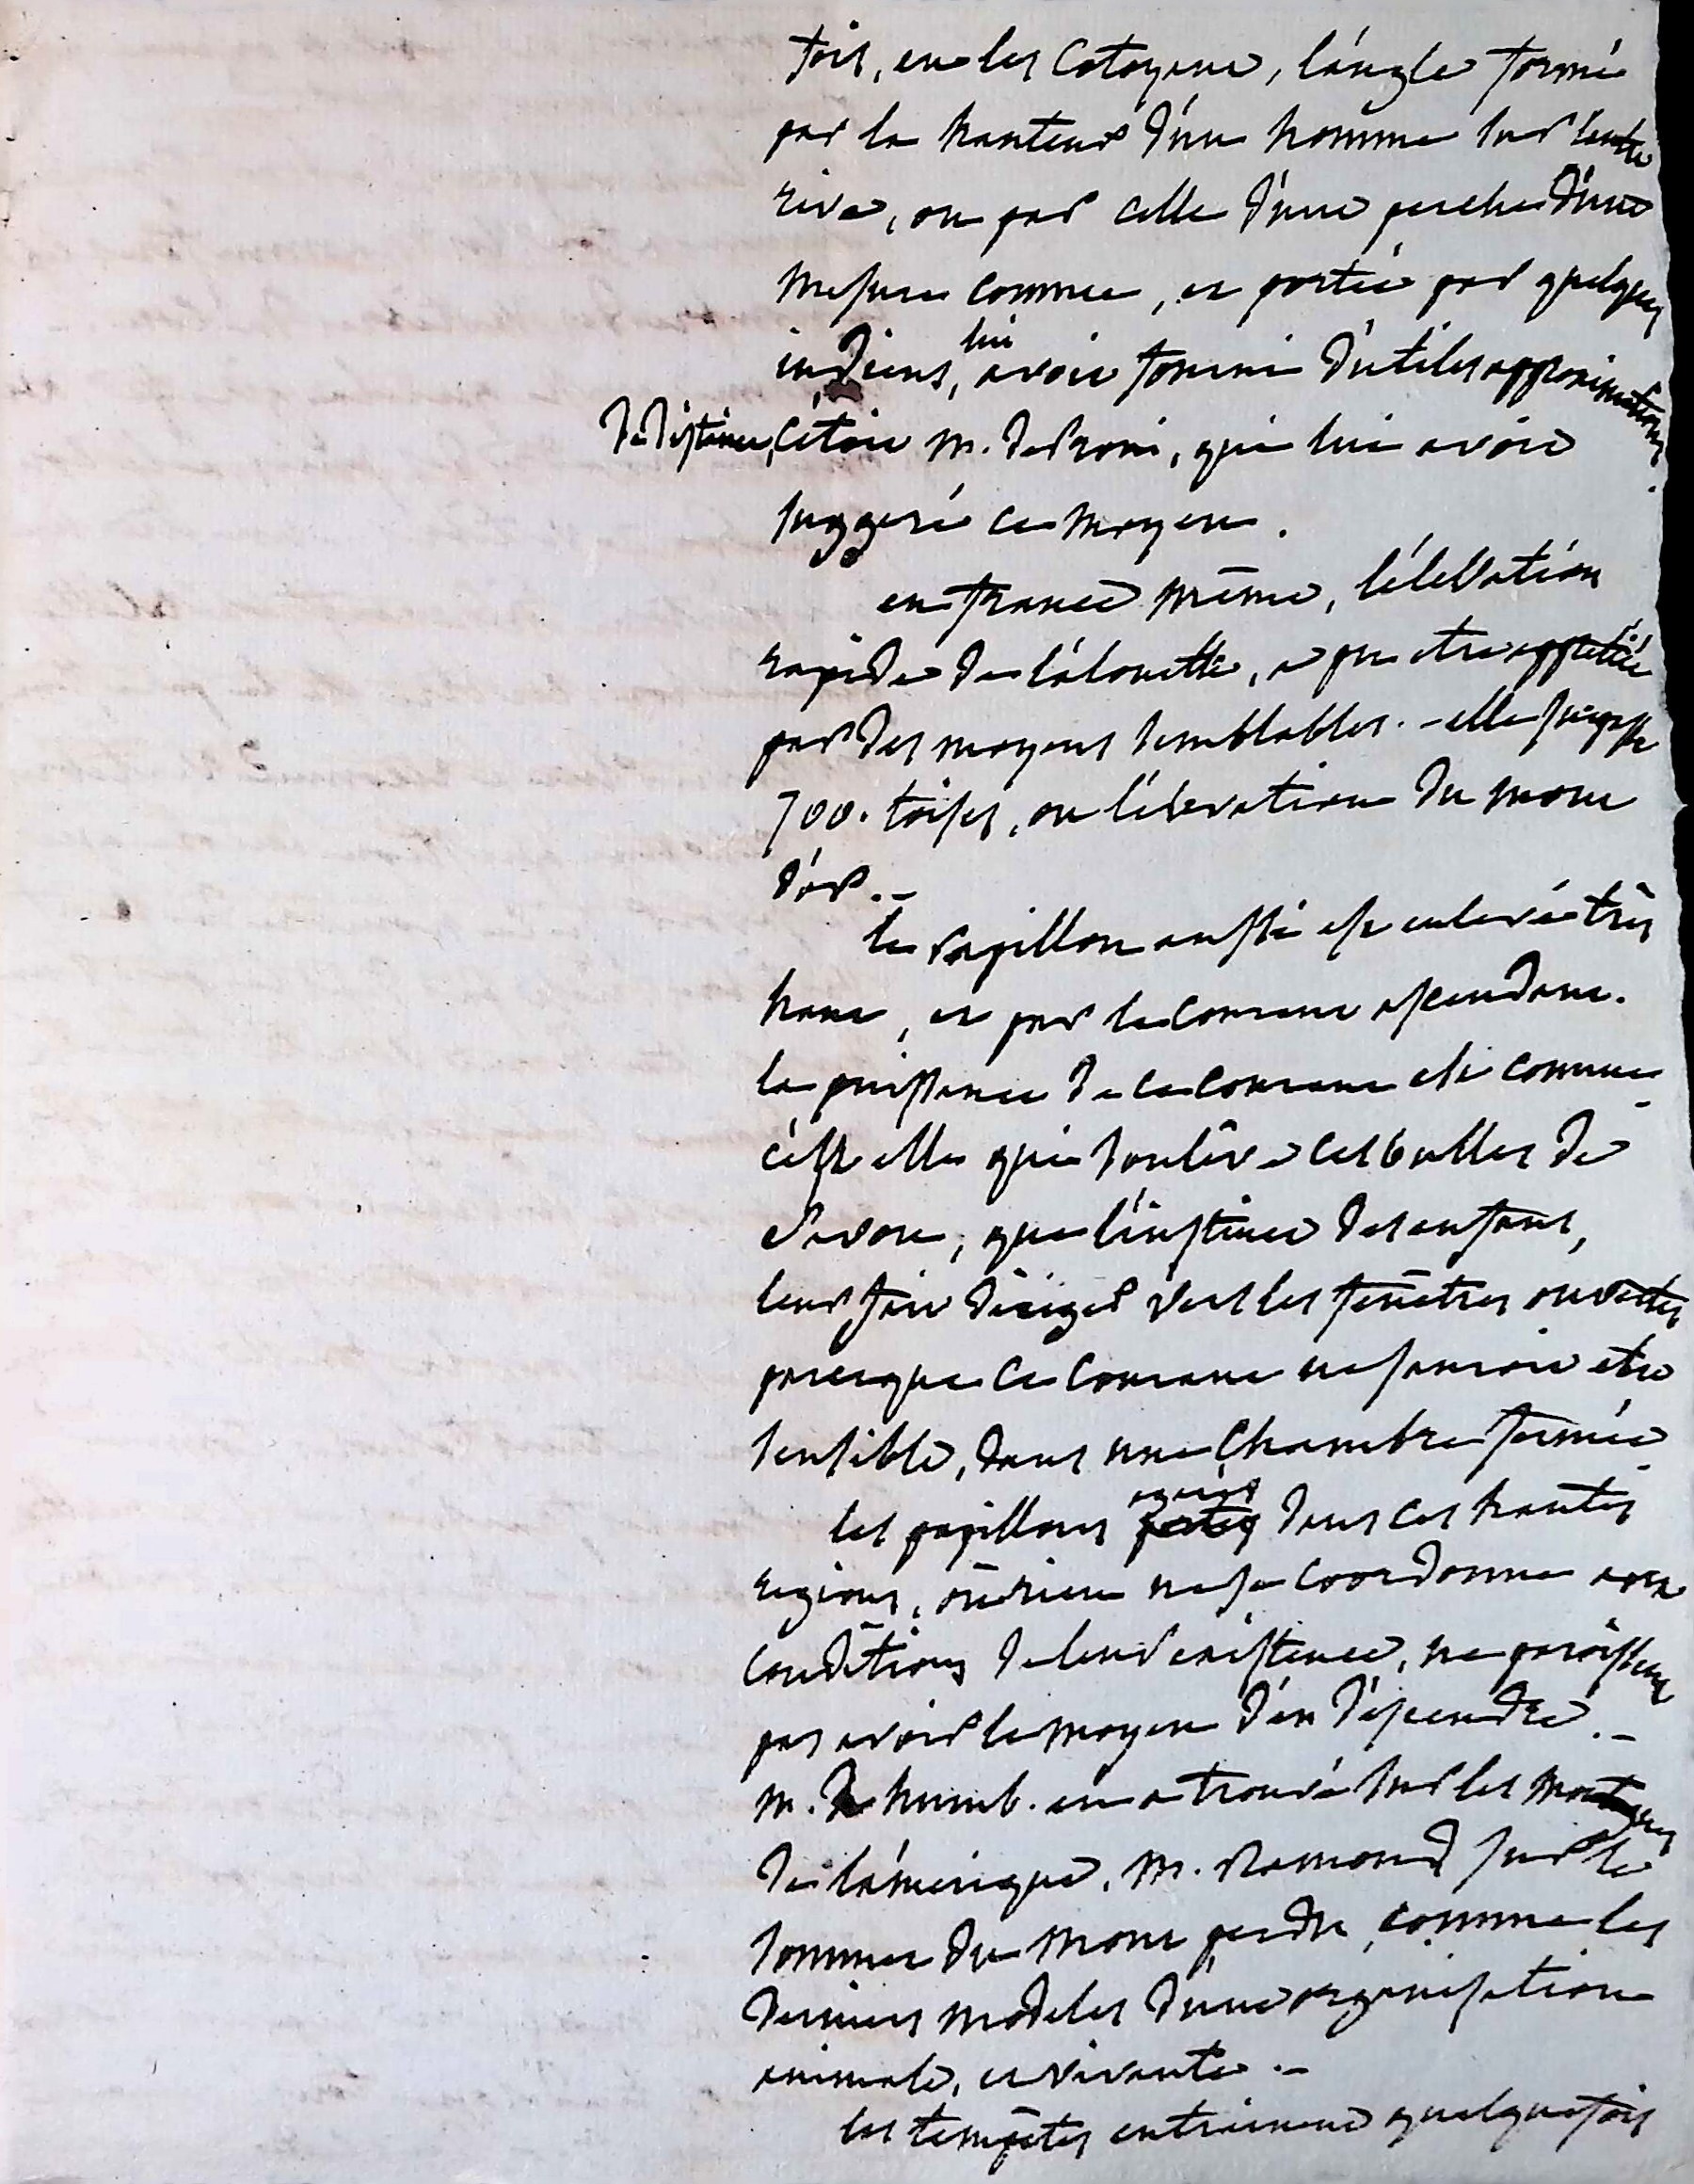 fois, en les cotoyant, l'angle formé
par la hauteur d'un homme sur l'autre
rive, ou par celle d'une perche d'une
mesure connue, et portée par quelques
indiens, lui avoit fourni d'utiles approximations
de distance, c'étoit m. de Proni, qui lui avoit
suggeré ce moyen.
en france même, l'élévation
rapide de l'alouette, a pu etre
par des moyens semblables. - elle surpasse
700. toises, ou l'élevation du mont
d'or. -
le papillon aussi est enlevé très
haut, et par le courant ascendant.
la puissance de ce courant est connue -
c'est elle qui soulève ces bulles de
savon, que l'instinct des enfans,
leur fait diriger vers les fenêtres ouvertes
parceque ce courant ne sauroit etre
sensible, dans une chambre fermée -
les papillons portés dans ces hautes
regions, où rien ne se coordonne avec
conditions de leur existence, ne paroissent
pas avoir le moyen d'en descendre. -
m. de humb. en a trouvé sur les montagnes
de l'amerique, m. Ramond sur le
sommet du mont perdu, comme les
derniers modeles d'une organisation
animale, et vivante. -
les tempêtes entrainent quelquefois